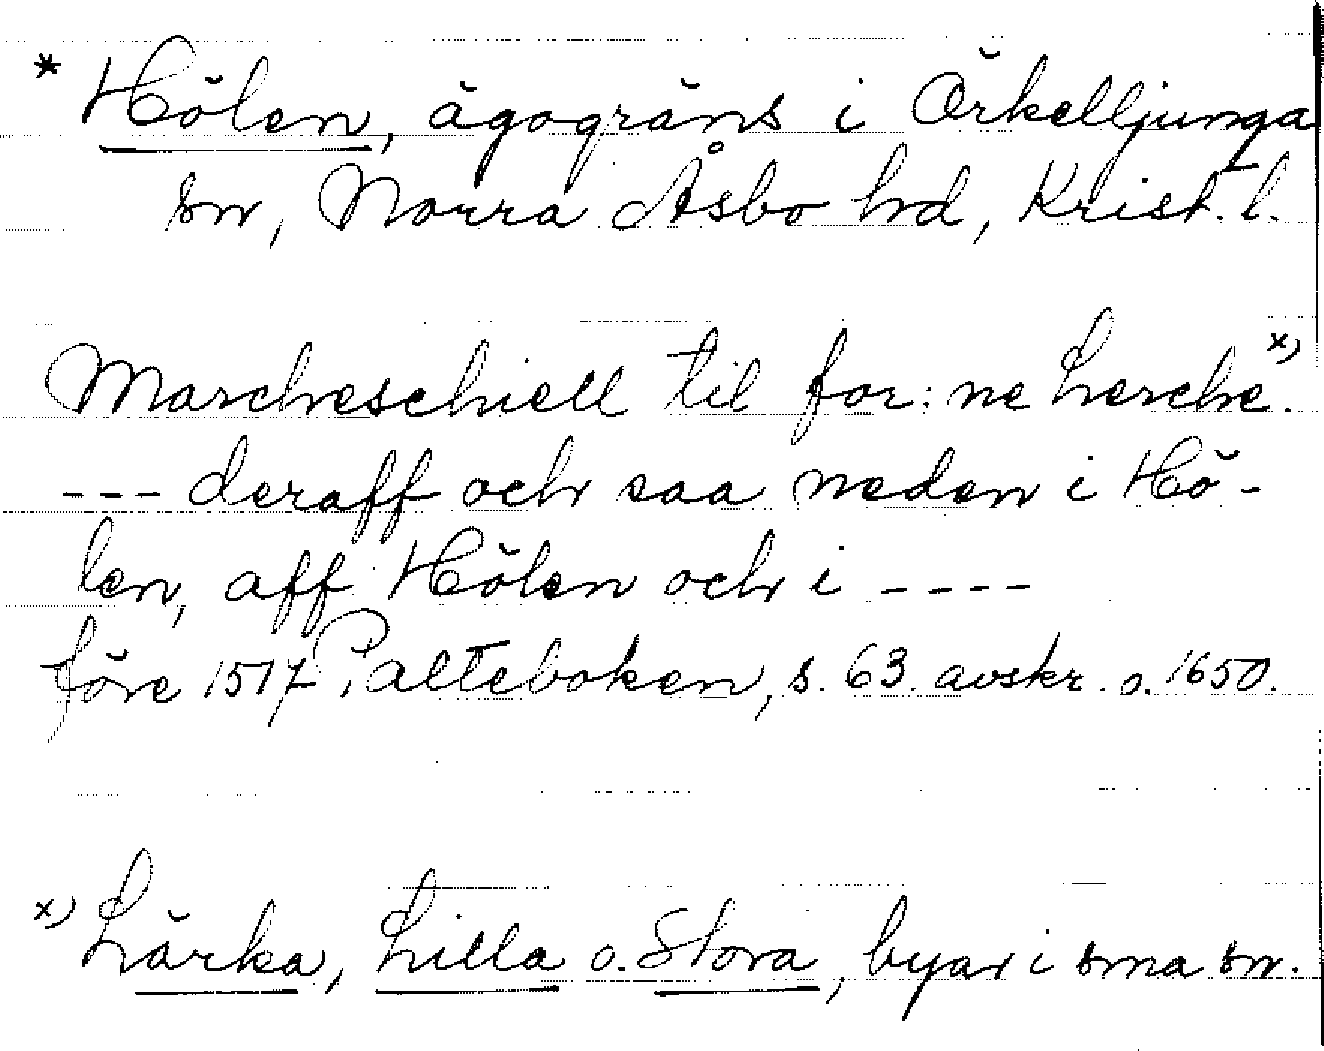 * Hölen, ägogräns i Örkelljunga
sn, Norra Åsbo hd, Krist. l.
Marcheschiell til for: ne Lerche.x)
--- deraff och saa neden i Hö-
len, aff Hölen och i ----
före 1517 Palteboken, s. 63. avskr. o. 1650.
x) Lärka, Lilla o. Stora, byar i sma sn.